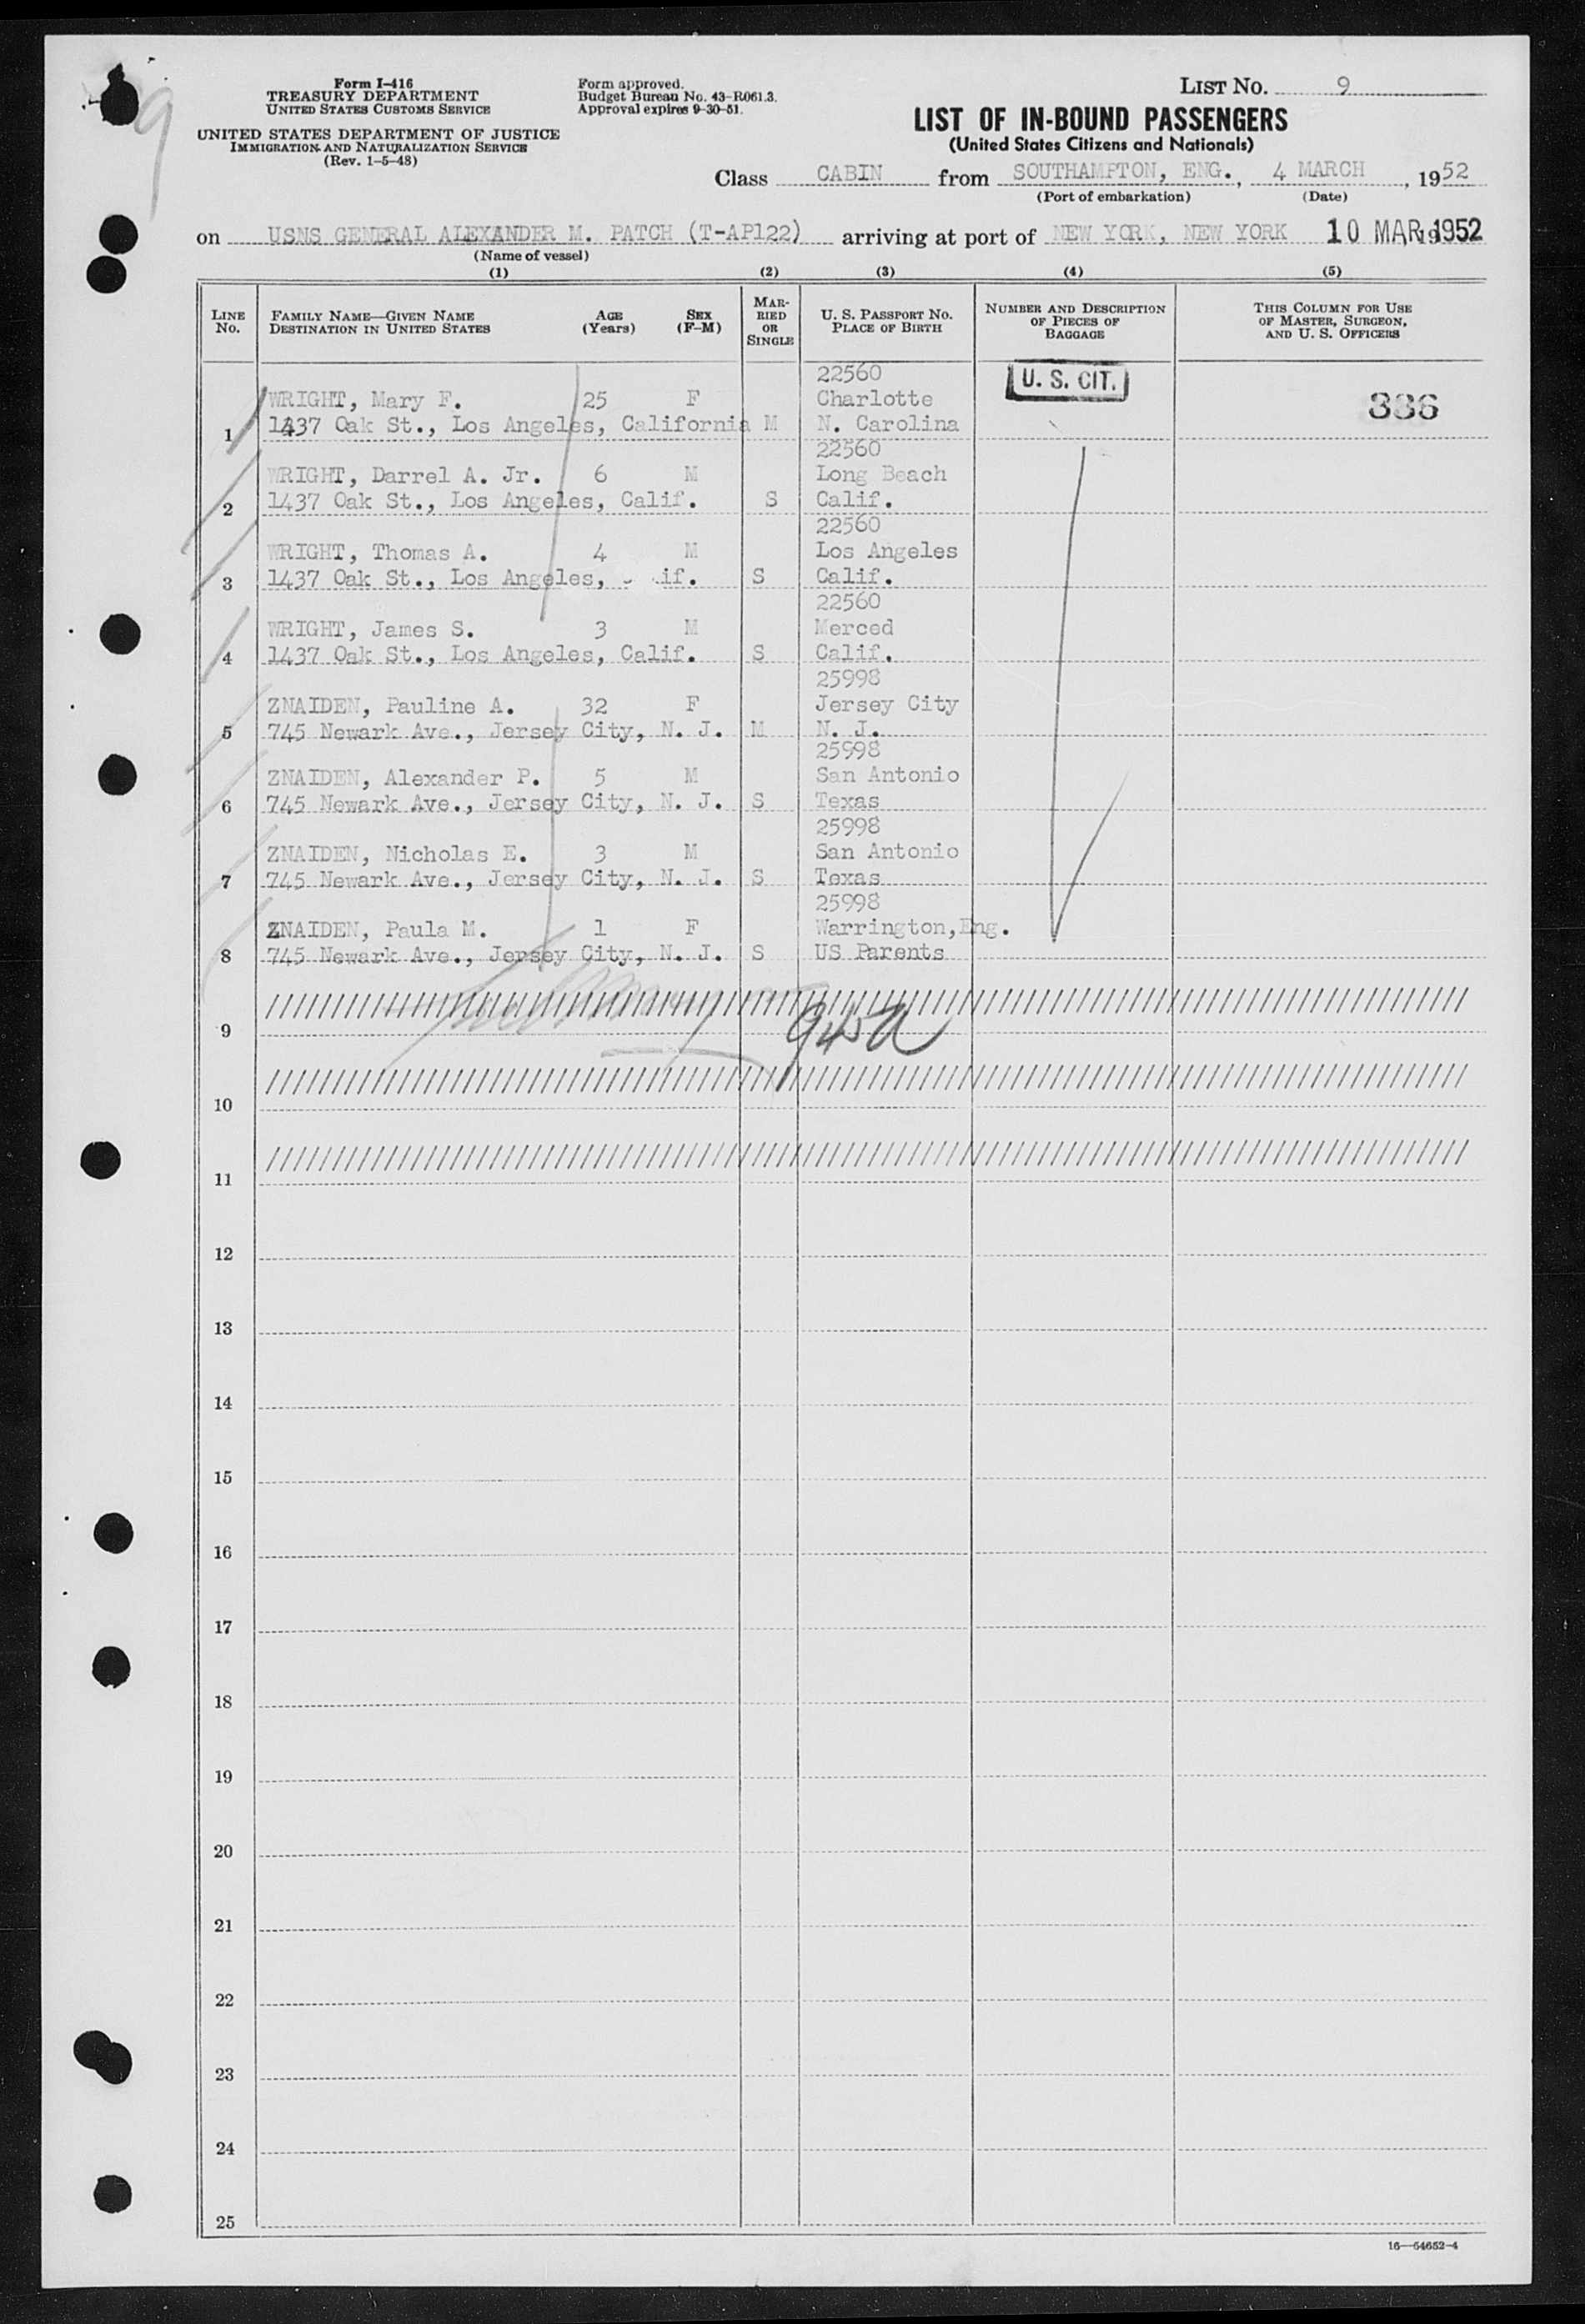 Form I-416
TREASURY DEPARTMENT
UNITED STATES CUSTOMS SERVICE
UNITED STATES DEPARTMENT OF JUSTICE
IMMIGRATION AND NATURALIZATION SERVICE
(Rev. 1-5-48)
Form approved.
Budget Bureau No. 43-R061.3.
Approval expires 9-30-51.
LIST NO. 9
LIST OF IN-BOUND PASSENGERS
(United States Citizens and Nationals)
Class CABIN from SOUTHAMPTON, ENG., 4 MARCH, 1952
(Port of embarkation) (Date)
on USNS GENERAL ALEXANDER M. PATCH (T-AP122) arriving at port of NEW YORK, NEW YORK 10 MAR 1952
(Name of vessel)
(1) (2) (3) (4) (5)
LINE NO.
FAMILY NAME—GIVEN NAME
DESTINATION IN UNITED STATES
AGE (Years)
SEX (F-M)
MARRIED OR SINGLE
U. S. PASSPORT NO.
PLACE OF BIRTH
NUMBER AND DESCRIPTION OF PIECES OF BAGGAGE
THIS COLUMN FOR USE OF MASTER, SURGEON, AND U. S. OFFICERS
22560 U. S. CIT.
WRIGHT, Mary F. 25 F Charlotte 336
1 1437 Oak St., Los Angeles, California M N. Carolina
22560
WRIGHT, Darrel A. Jr. 6 M Long Beach
2 1437 Oak St., Los Angeles, Calif. S Calif.
22560
WRIGHT, Thomas A. 4 M Los Angeles
3 1437 Oak St., Los Angeles, Calif. S Calif.
22560
WRIGHT, James S. 3 M Merced
4 1437 Oak St., Los Angeles, Calif. S Calif.
25998
ZNAIDEN, Pauline A. 32 F Jersey City
5 745 Newark Ave., Jersey City, N. J. M N. J.
25998
ZNAIDEN, Alexander P. 5 M San Antonio
6 745 Newark Ave., Jersey City, N. J. S Texas
25998
ZNAIDEN, Nicholas E. 3 M San Antonio
7 745 Newark Ave., Jersey City, N. J. S Texas
25998
ZNAIDEN, Paula M. 1 F Warrington, Eng.
8 745 Newark Ave., Jersey City, N. J. S US Parents
9
10
11
12
13
14
15
16
17
18
19
20
21
22
23
24
25
16—54652-4
9